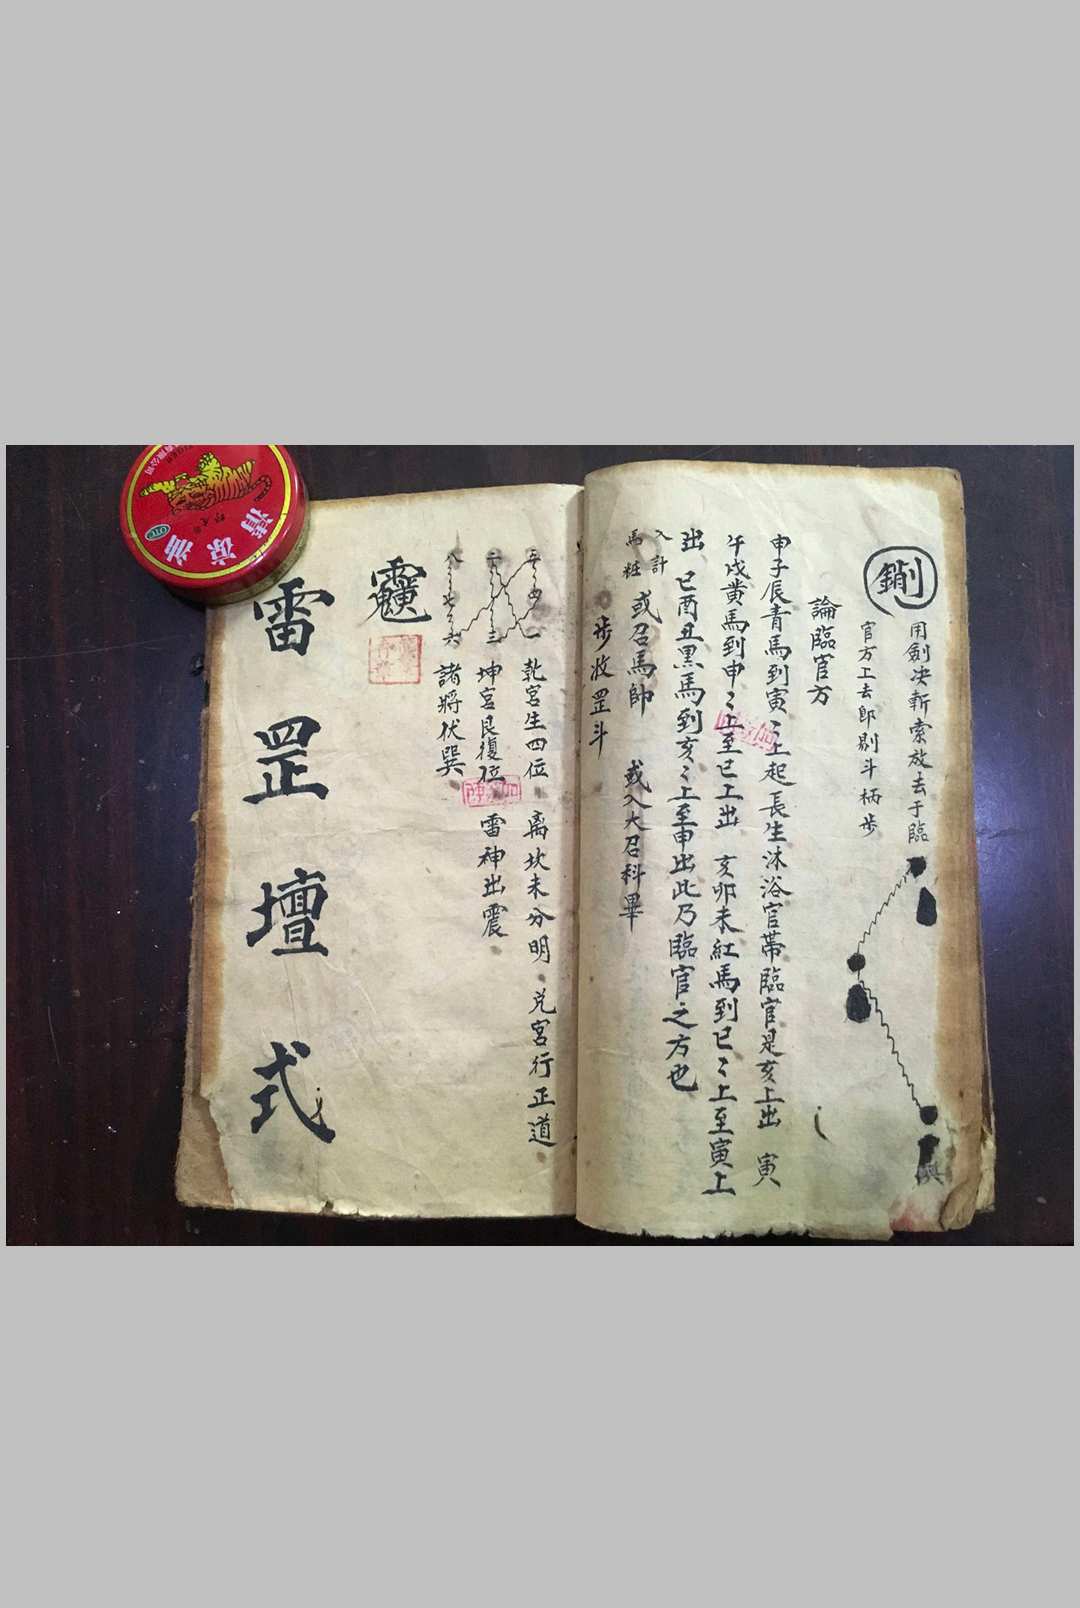 用劍决斬索放去于臨
官方上去郎剔斗柄步
論臨官方
申子辰青馬到寅〻上起長生沐浴官帶臨官是亥上出 寅
午戌黄馬到申〻上至巳上出 亥卯未紅馬到巳〻上至寅上
出 巳酉丑黑馬到亥〻上至申出此乃臨官之方也
入計
馬粧
或召馬帥 或入大召科畢
步收罡斗
乾宮生四位 离坎未分明 兑宮行正道
坤宮艮復位 雷神出震
諸將伏巽
雷罡壇式
清凉油